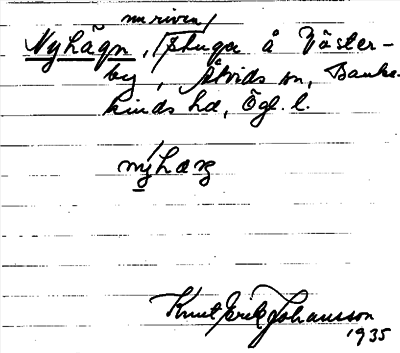 nu riven/
Nyhägn, stuga å Väster-
by, Åtvids sn, Banke-
kinds hd, Ögl. l.
nýhæŋ
Knut Erik Johansson
1935